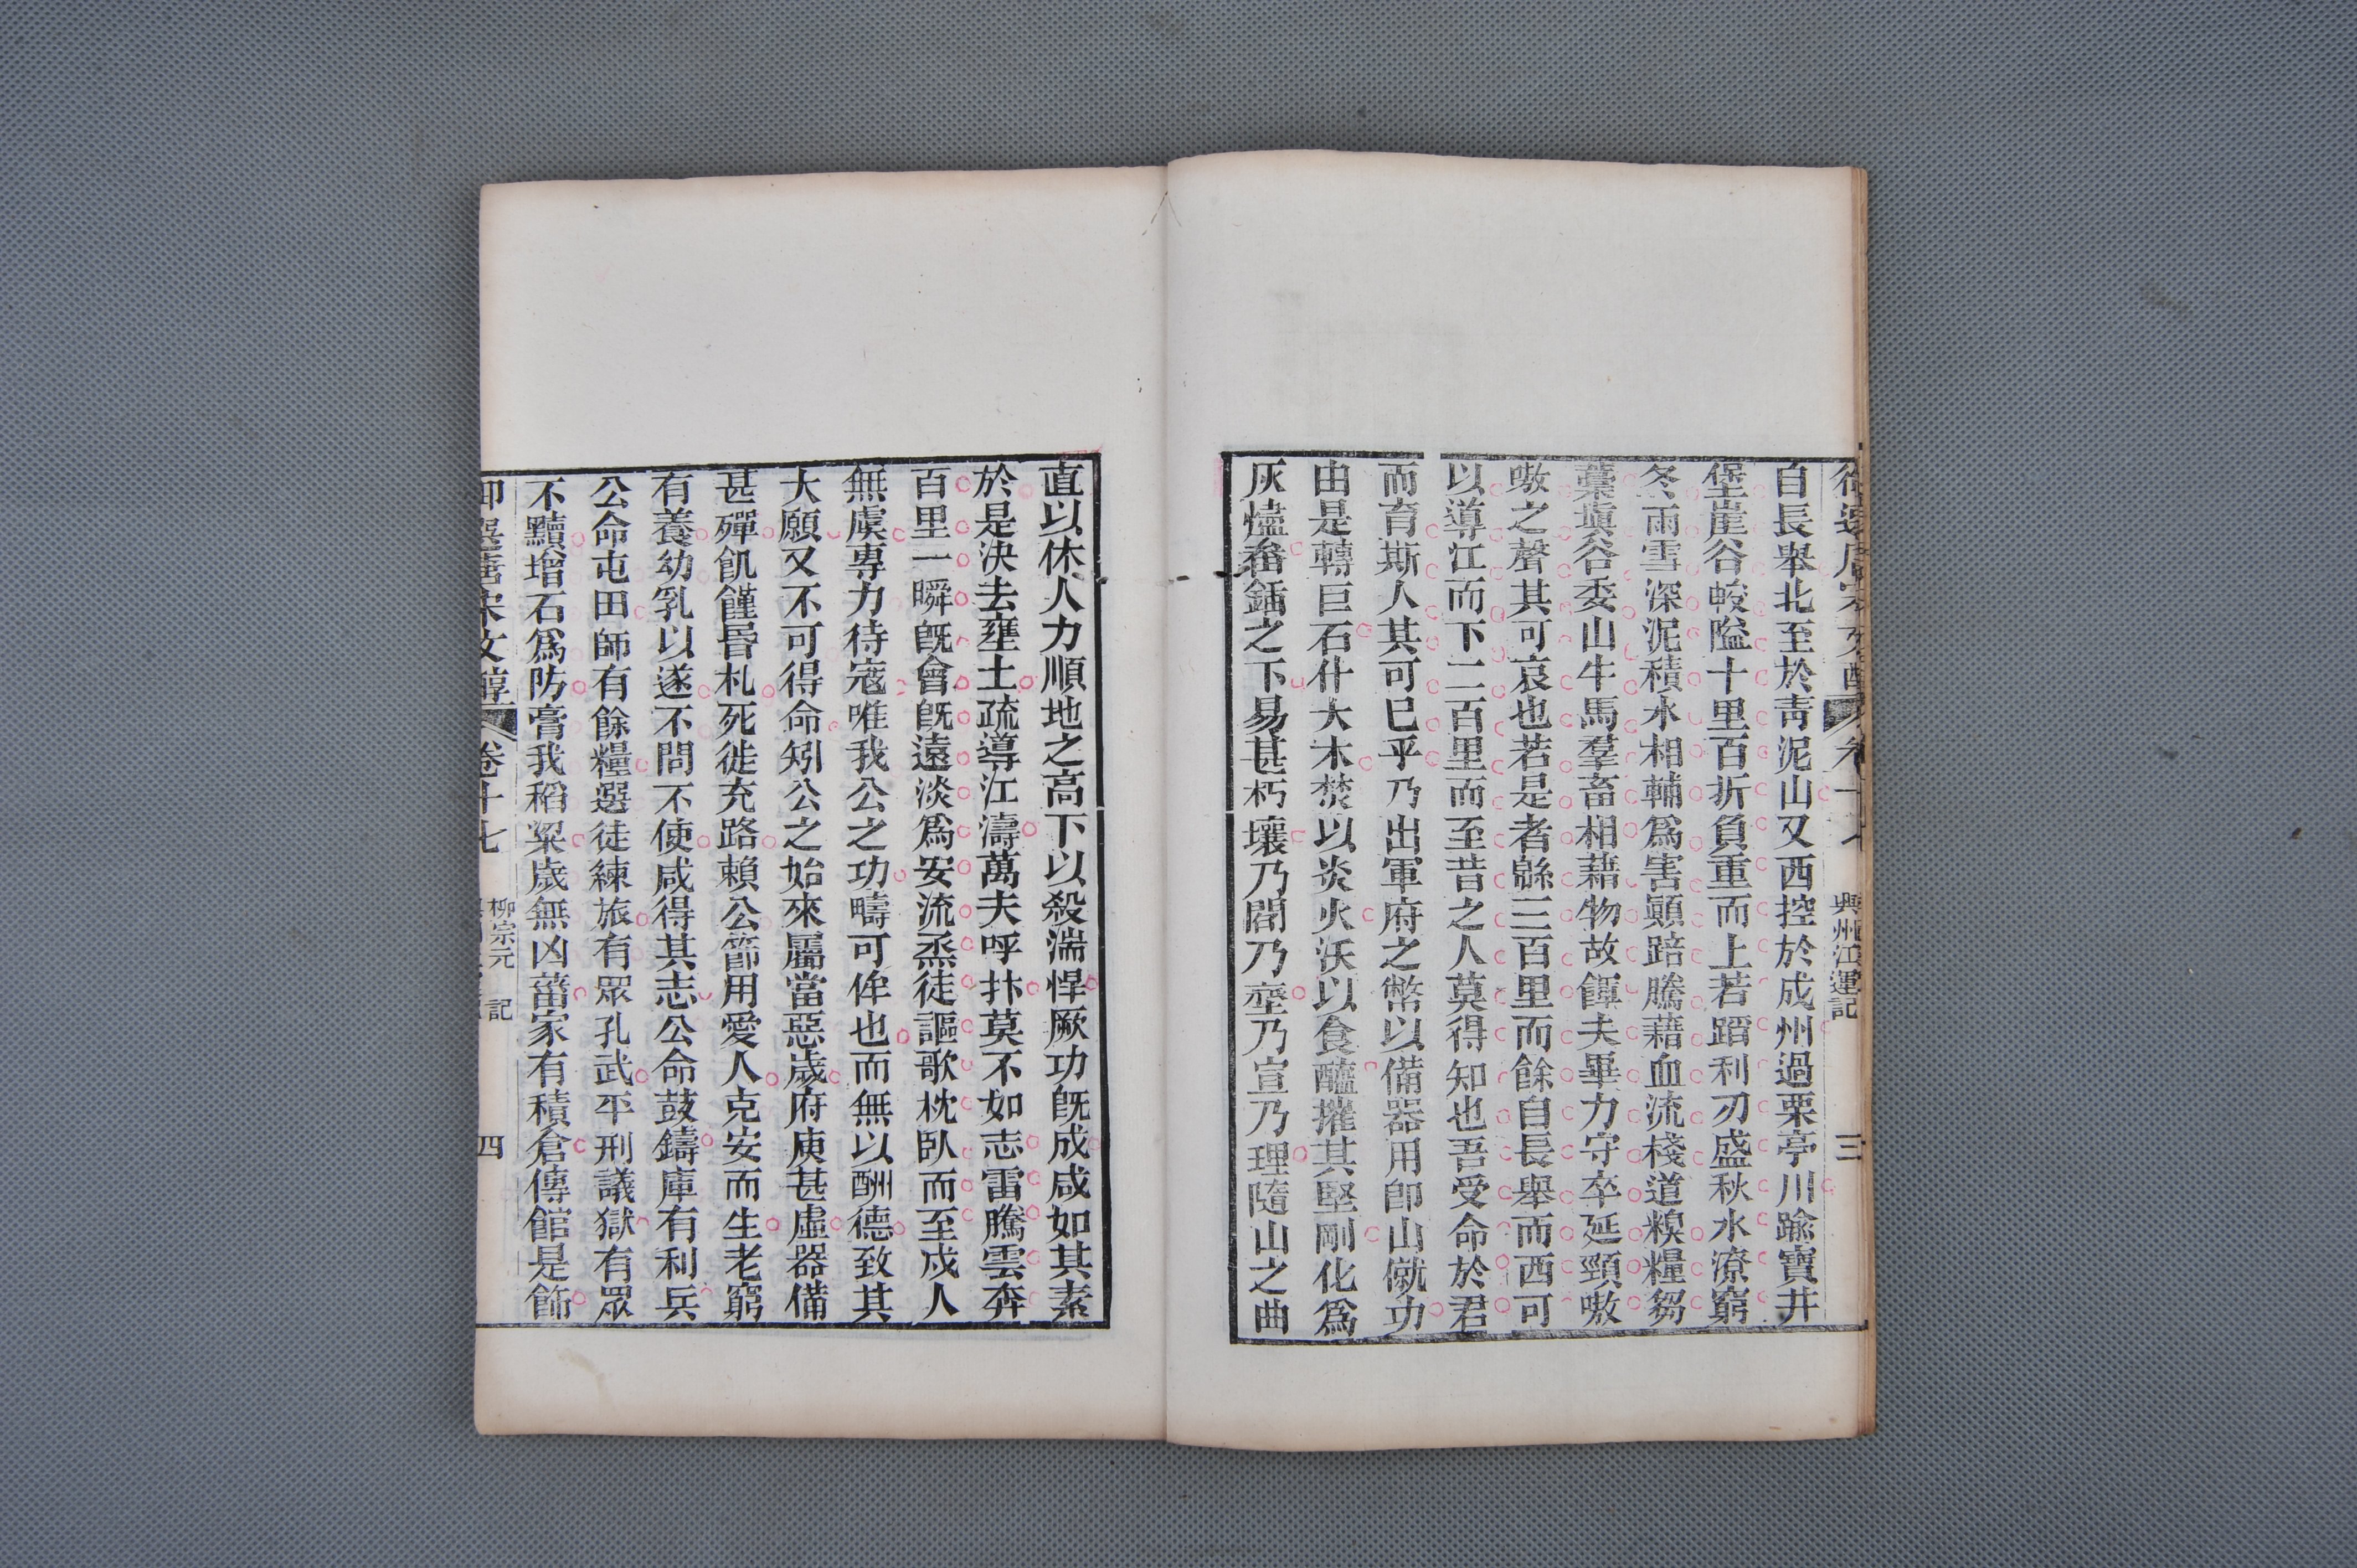 自長舉北至於青泥山又西控於成州過栗亭川踰寶井
堡崖谷峻隘十里百折負重而上若蹈利刃盛秋水潦窮
冬雨雪深泥積水相輔爲害顚踣騰藉血流棧道糗糧芻
藁塡谷委山牛馬羣畜相藉物故餫夫畢力守卒延頸嗷
嗷之聲其可哀也若是者緜三百里而餘自長舉而西可
以導江而下二百里而至昔之人莫得知也吾受命於君
而育斯人其可已乎乃出軍府之幣以備器用卽山僦功
由是轉巨石仆大木焚以炎火沃以食醯摧其堅剛化爲
灰燼畚鍤之下易甚朽壞乃闢乃墾乃宣乃理隨山之曲
興州江運記
三
直以休人力順地之高下以殺湍悍厥功旣成咸如其素
於是決去壅土疏導江濤萬夫呼抃莫不如志雷騰雲奔
百里一瞬旣會旣遠淡爲安流烝徒謳歌枕臥而至戍人
無虞專力待寇唯我公之功疇可侔也而無以酬德致其
大願又不可得命矧公之始來屬當惡歲府庾甚虛器備
甚殫飢饉昬札死徙充路賴公節用愛人克安而生老窮
有養幼乳以遂不問不使咸得其志公命鼓鑄庫有利兵
公命屯田師有餘糧選徒練旅有眾孔武平刑議獄有眾
不黷增石爲防膏我稻粱歲無凶菑家有積倉傳館是飾
御選唐宋文醇
卷十七
柳宗元 記
四